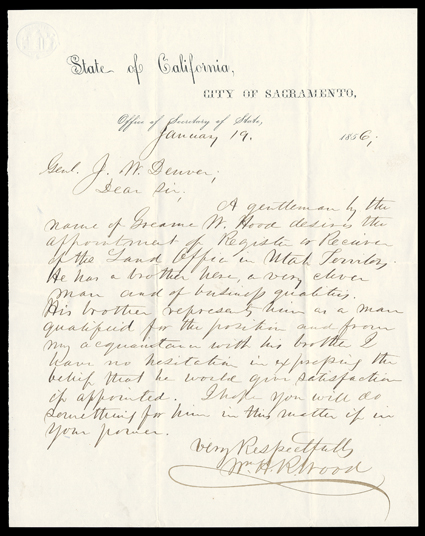 State of California,
CITY OF SACRAMENTO,
Office of Secretary of State,
January 19. 1856;
Genl. J. W. Denver;
Dear Sir;
A gentleman by the
name of W. Hood desires the
appointment of Register or Receiver
of the Land Office in Utah Territory.
He has a brother here, a very clever
man and of business qualities.
His brother represents him as a man
qualified for the position and from
my acquaintance with his brother I
have no hesitation in expressing the
belief that he would give satisfaction
if appointed. I hope you will do
something for him in this matter if in
your power.
Very Respectfully
Wm. H. R. Wood